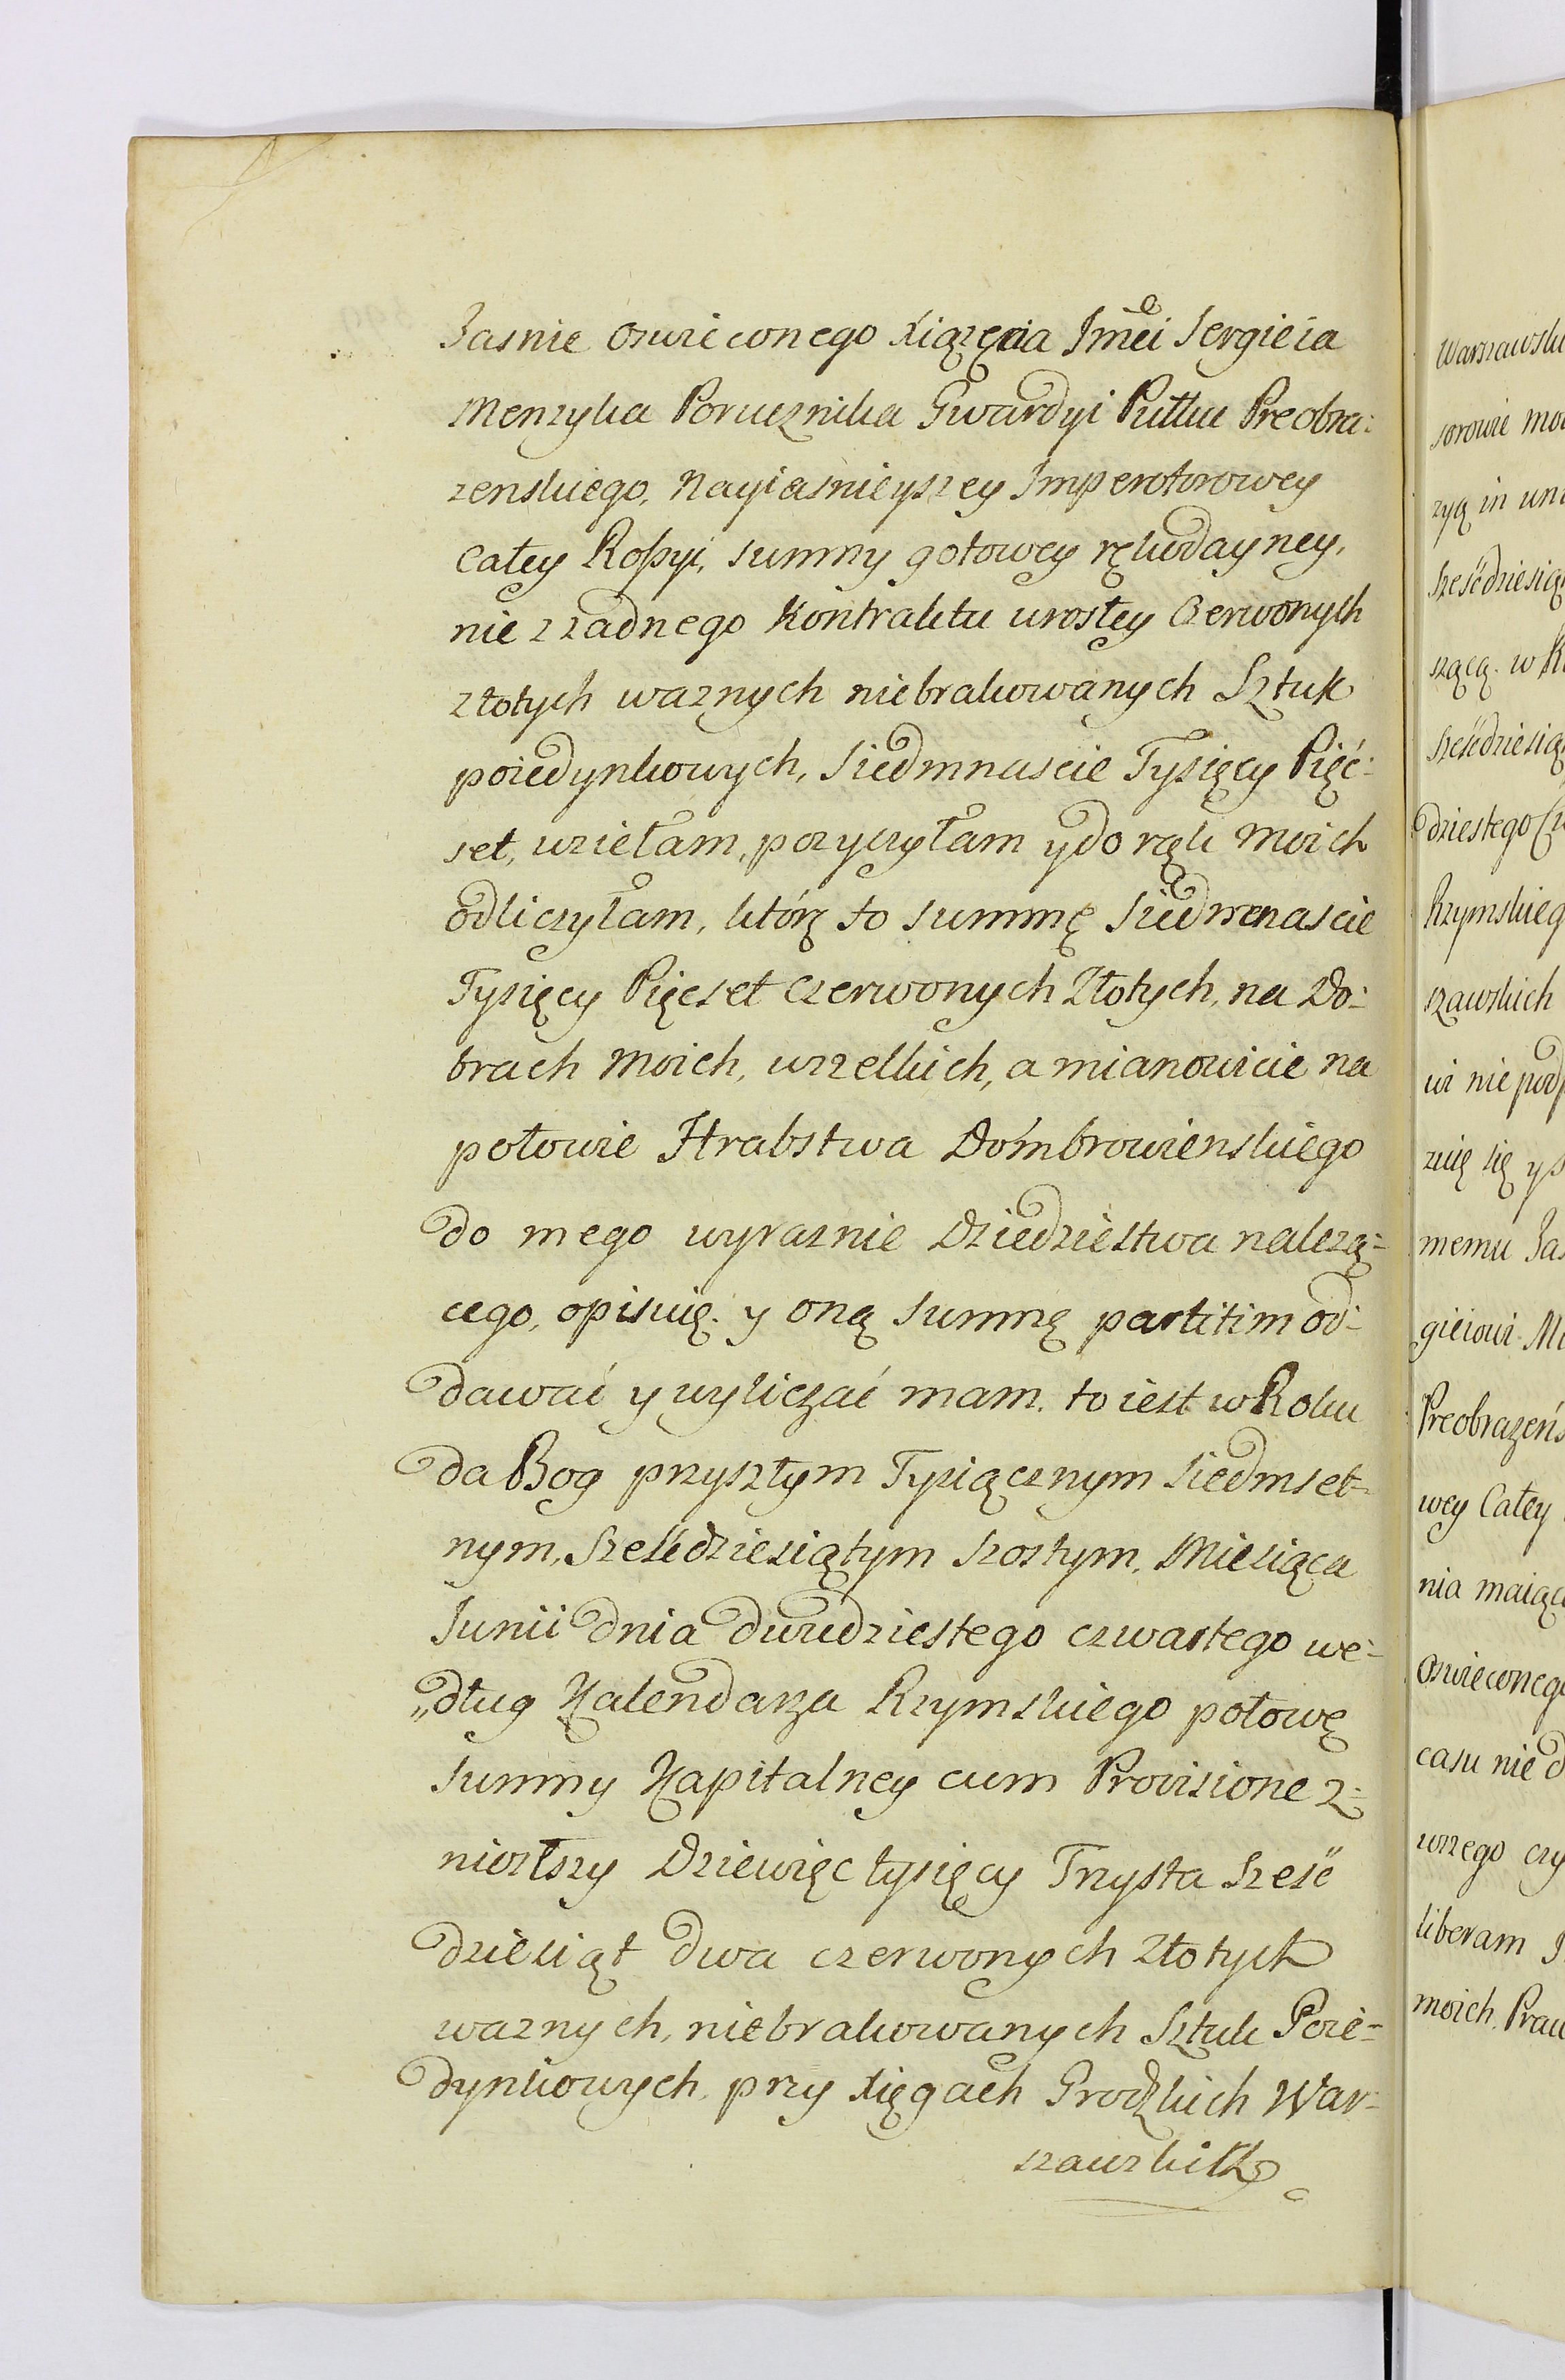 Jasnie oswieconego Xiązęcia Jmēi Sergieia
Menzyka Porucznika Gwardyi Pułku Preobra:
zenskiego, Nayiasnieyszey Imperotorowey
Całey Rossyi, summy gotowey rękodayney,
nie z zadnego Kontraktu urosłey Czerwonych
złotych waznych niebrakowanych Sztuk
poiedynkowych, Siedmnascie Tysięcy Pięć:
set, wziełam, pozyczyłam y do rąk Moich
odliczyłam, którą to summę Siedmnascie
Tysięcy Pięcset Czerwonych Złotych, na Do:
brach Moich, wszelkich, a mianowicie na
połowie Hrabstwa Dómbrowienskiego
do mego wyraznie Dziedzictwa nalezą=
cego, opisuię. y oną Summę partitim od=
dawać y wyliczać mam. to iest w Roku
da Bog przyszłym Tysiącznym Siedmset=
nym, Sześćdziesiątym szostym, Miesiąca
Junii dnia dwudziestego czwartego we=
„dług Kalendarza Rzymskiego połowę
Summy Kapitalney cum Provisione z=
niozłszy Dziewięc tysięcy Trzysta Sześć
dziesiąt dwa czerwonych złotych
waznych, niebrakowanych Sztuk Poie=
dynkowych, przy Xięgach Grodzkich War=
szawskich
Warszawski
sorowie
zyą in
Sześćdziesią
szącą. w
Sześćdziesią
dziestego
Rzymskieg
szawskich
wi nie
się y
memu Jas
gieiowi
Preobrazeńs
wey Całey
nia maiąc
Oswieconeg
casu nie
wszego
liberam
moich, Praw